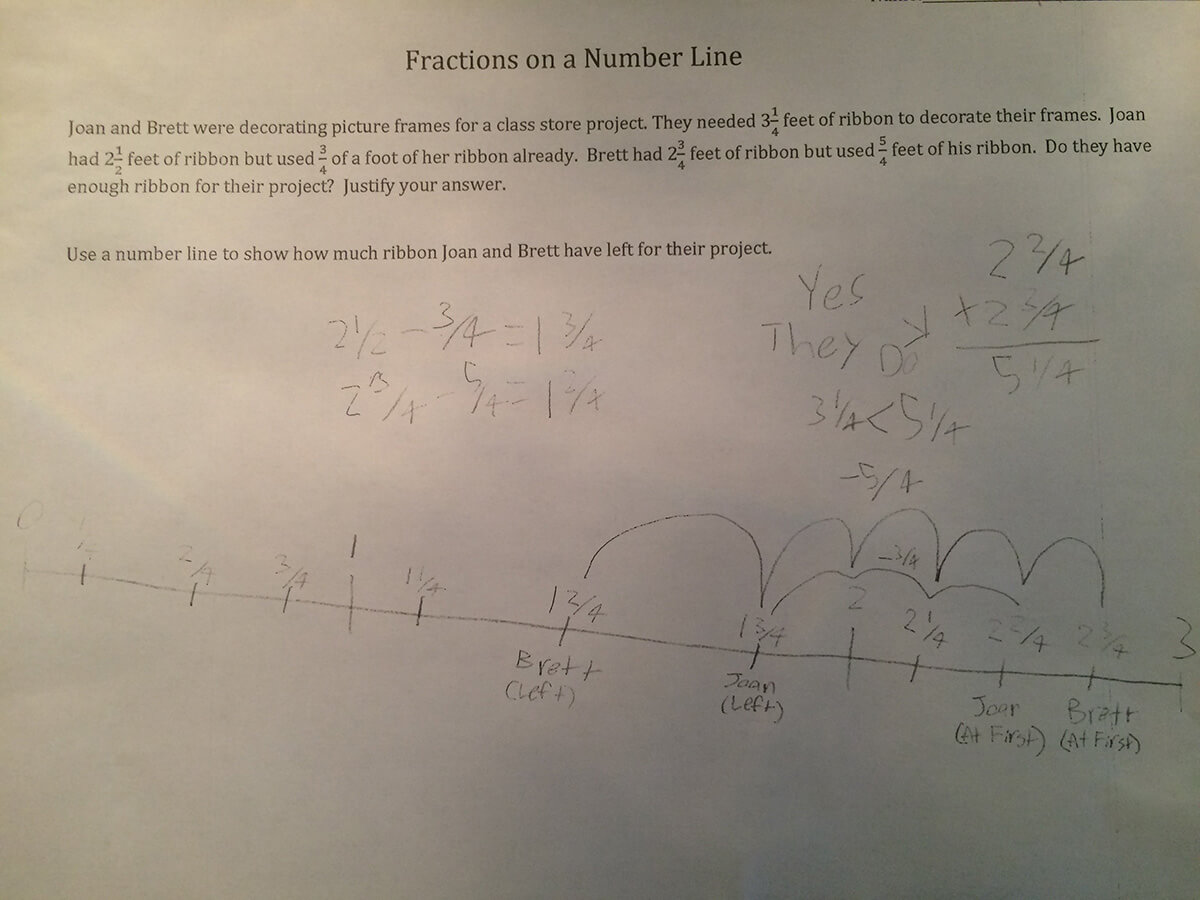 Fractions on a Number Line
Joan and Brett were decorating picture frames for a class store project. They needed 3 1/4 feet of ribbon to decorate their frames. Joan
had 2 1/2 feet of ribbon but used 3/4 of a foot of her ribbon already. Brett had 2 3/4 feet of ribbon but used 5/4 feet of his ribbon. Do they have
enough ribbon for their project? Justify your answer.
Use a number line to show how much ribbon Joan and Brett have left for their project.
2 1/2 - 3/4 = 1 3/4
2 3/4 - 5/4 = 1 2/4
Yes
They Do
2 2/4
+ 2 3/4
5 1/4
3 1/4 < 5 1/4
-5/4
-3/4
0 2/4 3/4 1 1 1/4 1 2/4 1 3/4 2 2 1/4 2 2/4 2 3/4 3
Brett
(Left)
Joan
(Left)
Joan
(At First)
Brett
(At First)